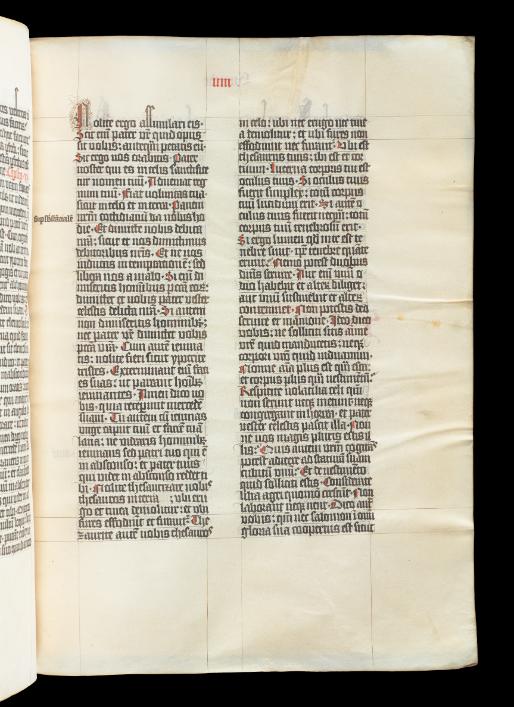 iiii
Nolite ergo assimilari eis.
Scit enī pater vr̄ quid opus
sit vobis: anteq̄m petatis eū.
Sic ergo vos orabitis. Pater
noster qui es in celis sanctifice
tur nomen tuū. Adueniat reg
num tuū. Fiat voluntas tua
sicut in celo et in terra. Panem
nr̄m cotidianū da nobis ho
die. Et dimitte nobis debita
nr̄a: sicut et nos dimittimus
debitoribus nr̄is. Et ne nos
inducas in temptacionē: sed
libera nos a malo. Si eī di
miseritis hominibus pctā eoꝝ:
dimittet et vobis pater vester
celestis delicta vr̄a. Si autem
non dimiseritis hominibꝫ:
nec pater vr̄ dimittet vobis
pctā vr̄a. Cum autē ieiuna
tis: nolite fieri sicut ypocrite
tristes. Exterminant enī faci
es suas: ut pareant hoībꝫ
ieiunantes. Amen dico vo
bis: quia receperūt mercedē
suam. Tu autem cū ieiunas
unge caput tuū et faciē tuā
laua: ne videaris hominibꝫ
ieiunans sed patri tuo qui ē
in absconso: et pater tuus
qui videt in absconso reddet ti
bi. Nolite thesaurizare vobis
thesauros in terra: vbi eru
go et tinea demolitur: et vbi
fures effodiunt et furantꝰ. The
zaurizate autē vobis thesauros
in celo: ubi nec erugo nec tine
a demolitur: et ubi fures non
effodiunt nec furant. Ubi est
thesaurus tuus: ibi est et cor
tuum. Lucerna corporis tui est
oculus tuus. Si oculus tuus
fuerit simplex: totum corpus
tuū lucidum erit. Si autē o
culus tuus fuerit nequā: totū
corpus tuū tenebrosū erit.
Si ergo lumen qd̄ in te est te
nebre sunt: ipse tenebre quāte
erunt. Nemo potest duobus
dn̄is seruire. Aut enī unū o
dio habebit et alterū diliget:
aut unū sustinebit et alterū
contemnet. Non potestis deo
seruire et māmone. Ideo dico
vobis: ne solliciti sitis anime
vr̄e quid manducetis: neqꝫ
corpori vr̄o quid induamini.
Nonne aīa plus est qm̄ esca:
et corpus plus qm̄ vestimentū.
Respicite volatilia celi: qm̄
non serunt neqꝫ metunt: neqꝫ
congregant in horrea: et pater
vester celestis pascit illa. Non
ne vos magis pluris estis il
lis: Quis autem vr̄m cogitās
potest adicere ad staturā suam
cubitū unū: Et de vestimento
quid solliciti estis. Considerate
lilia agri quomodo crescūt: Non
laborant neqꝫ nent. Dico autē
vobis: qm̄ nec salomon in omī
gloria sua coopertus est sicut